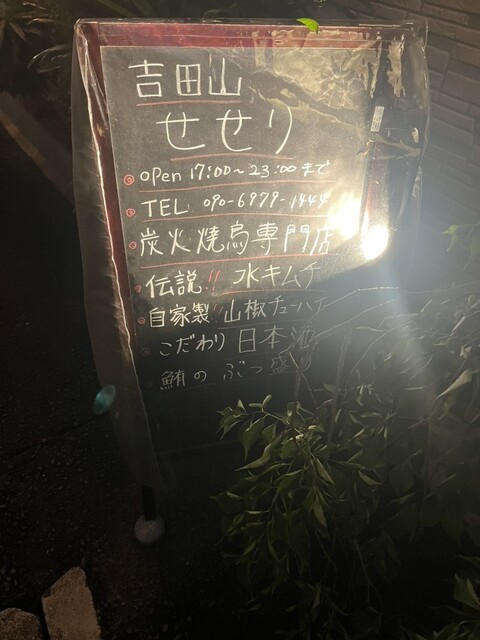 吉田山
せせり
open 17:00~23:00まで
TEL 090-6979-1444
炭火焼鳥専門店
伝説!! 水キムチ
自家製!! 山椒チューハイ
こだわり 日本酒
鮪の ぶつ盛り